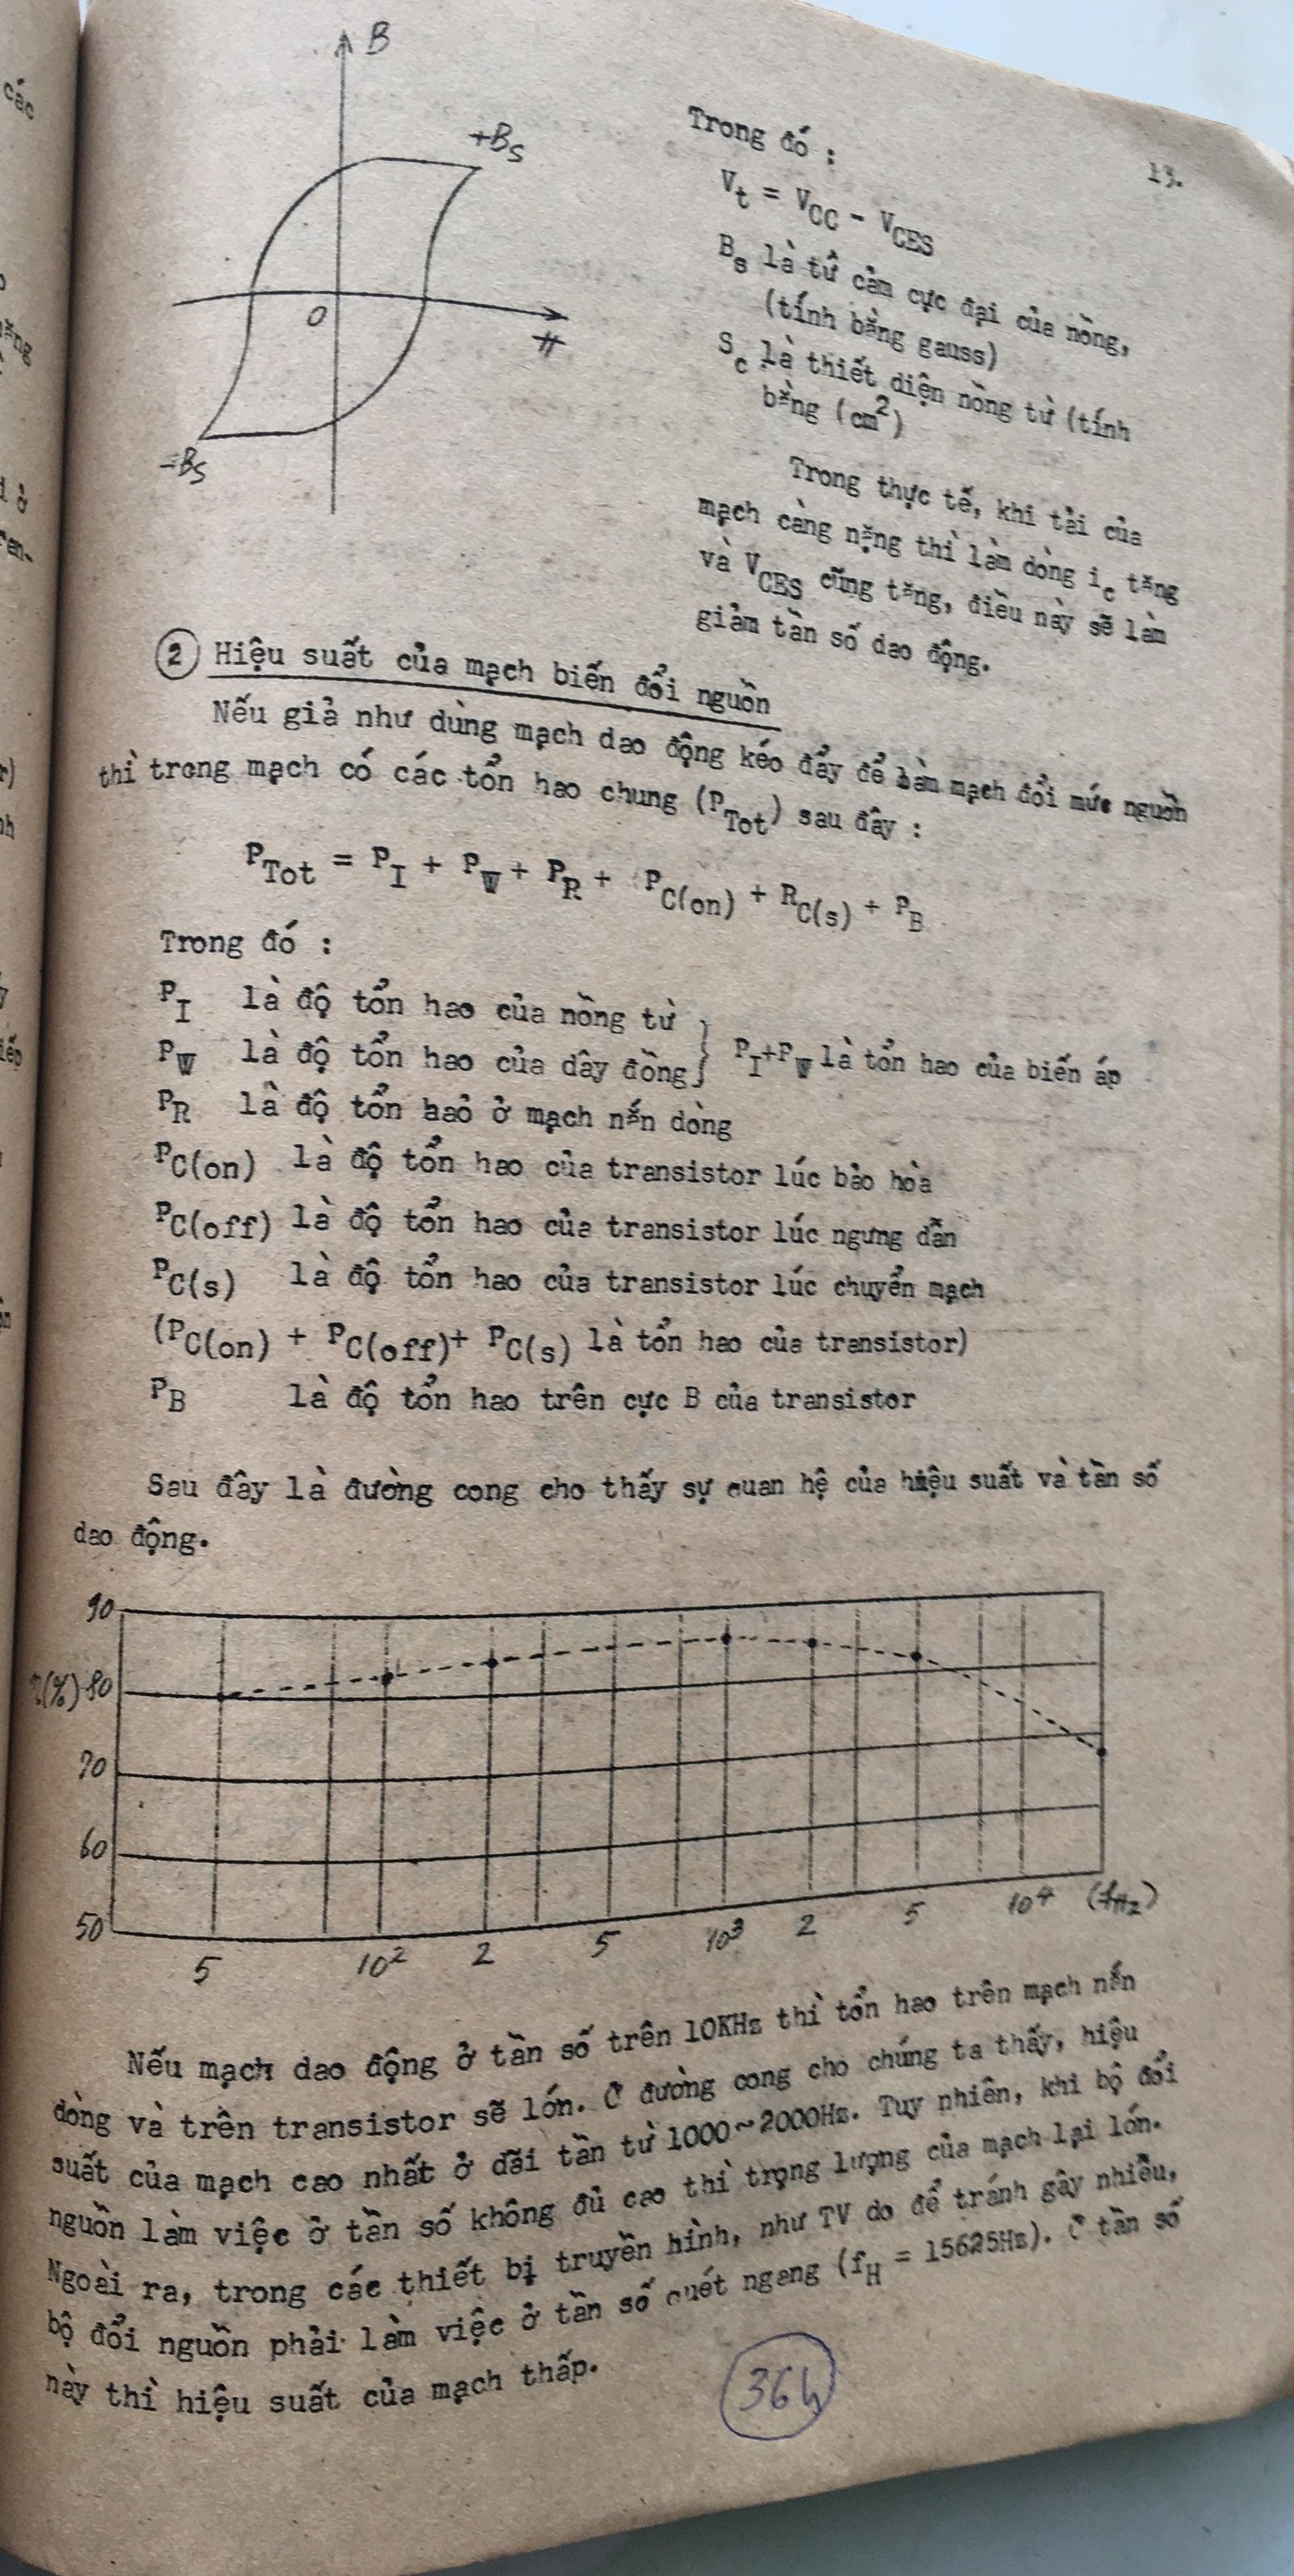 13.
B
+Bs
O
H
-Bs
Trong đó :
Vt = VCC - VCES
Bs là từ cảm cực đại của nòng,
(tính bằng gauss)
Sc là thiết diện nòng từ (tính
bằng (cm²)
Trong thực tế, khi tải của
mạch càng nặng thì làm dòng ic tăng
và VCES cũng tăng, điều này sẽ làm
giảm tần số dao động.
2 Hiệu suất của mạch biến đổi nguồn
Nếu giả như dùng mạch dao động kéo đẩy để làm mạch đổi mức nguồn
thì trong mạch có các tổn hao chung (PTot) sau đây :
PTot = PI + PW + PR + PC(on) + RC(s) + PB
Trong đó :
PI là độ tổn hao của nòng từ
PW là độ tổn hao của dây đồng} PI+PW là tổn hao của biến áp
PR là độ tổn hao ở mạch nắn dòng
PC(on) là độ tổn hao của transistor lúc bảo hòa
PC(off) là độ tổn hao của transistor lúc ngưng dẫn
PC(s) là độ tổn hao của transistor lúc chuyển mạch
(PC(on) + PC(off)+ PC(s) là tổn hao của transistor)
PB là độ tổn hao trên cực B của transistor
Sau đây là đường cong cho thấy sự quan hệ của hiệu suất và tần số
dao động.
90
η(%) 80
70
60
50
5 10² 2 5 10³ 2 5 10⁴ (fHz)
Nếu mạch dao động ở tần số trên 10KHz thì tổn hao trên mạch nắn
dòng và trên transistor sẽ lớn. Ở đường cong cho chúng ta thấy, hiệu
suất của mạch cao nhất ở dãi tần từ 1000~2000Hz. Tuy nhiên, khi bộ đổi
nguồn làm việc ở tần số không đủ cao thì trọng lượng của mạch lại lớn.
Ngoài ra, trong các thiết bị truyền hình, như TV do để tránh gây nhiễu,
bộ đổi nguồn phải làm việc ở tần số quét ngang (fH = 15625Hz). Ở tần số
này thì hiệu suất của mạch thấp.